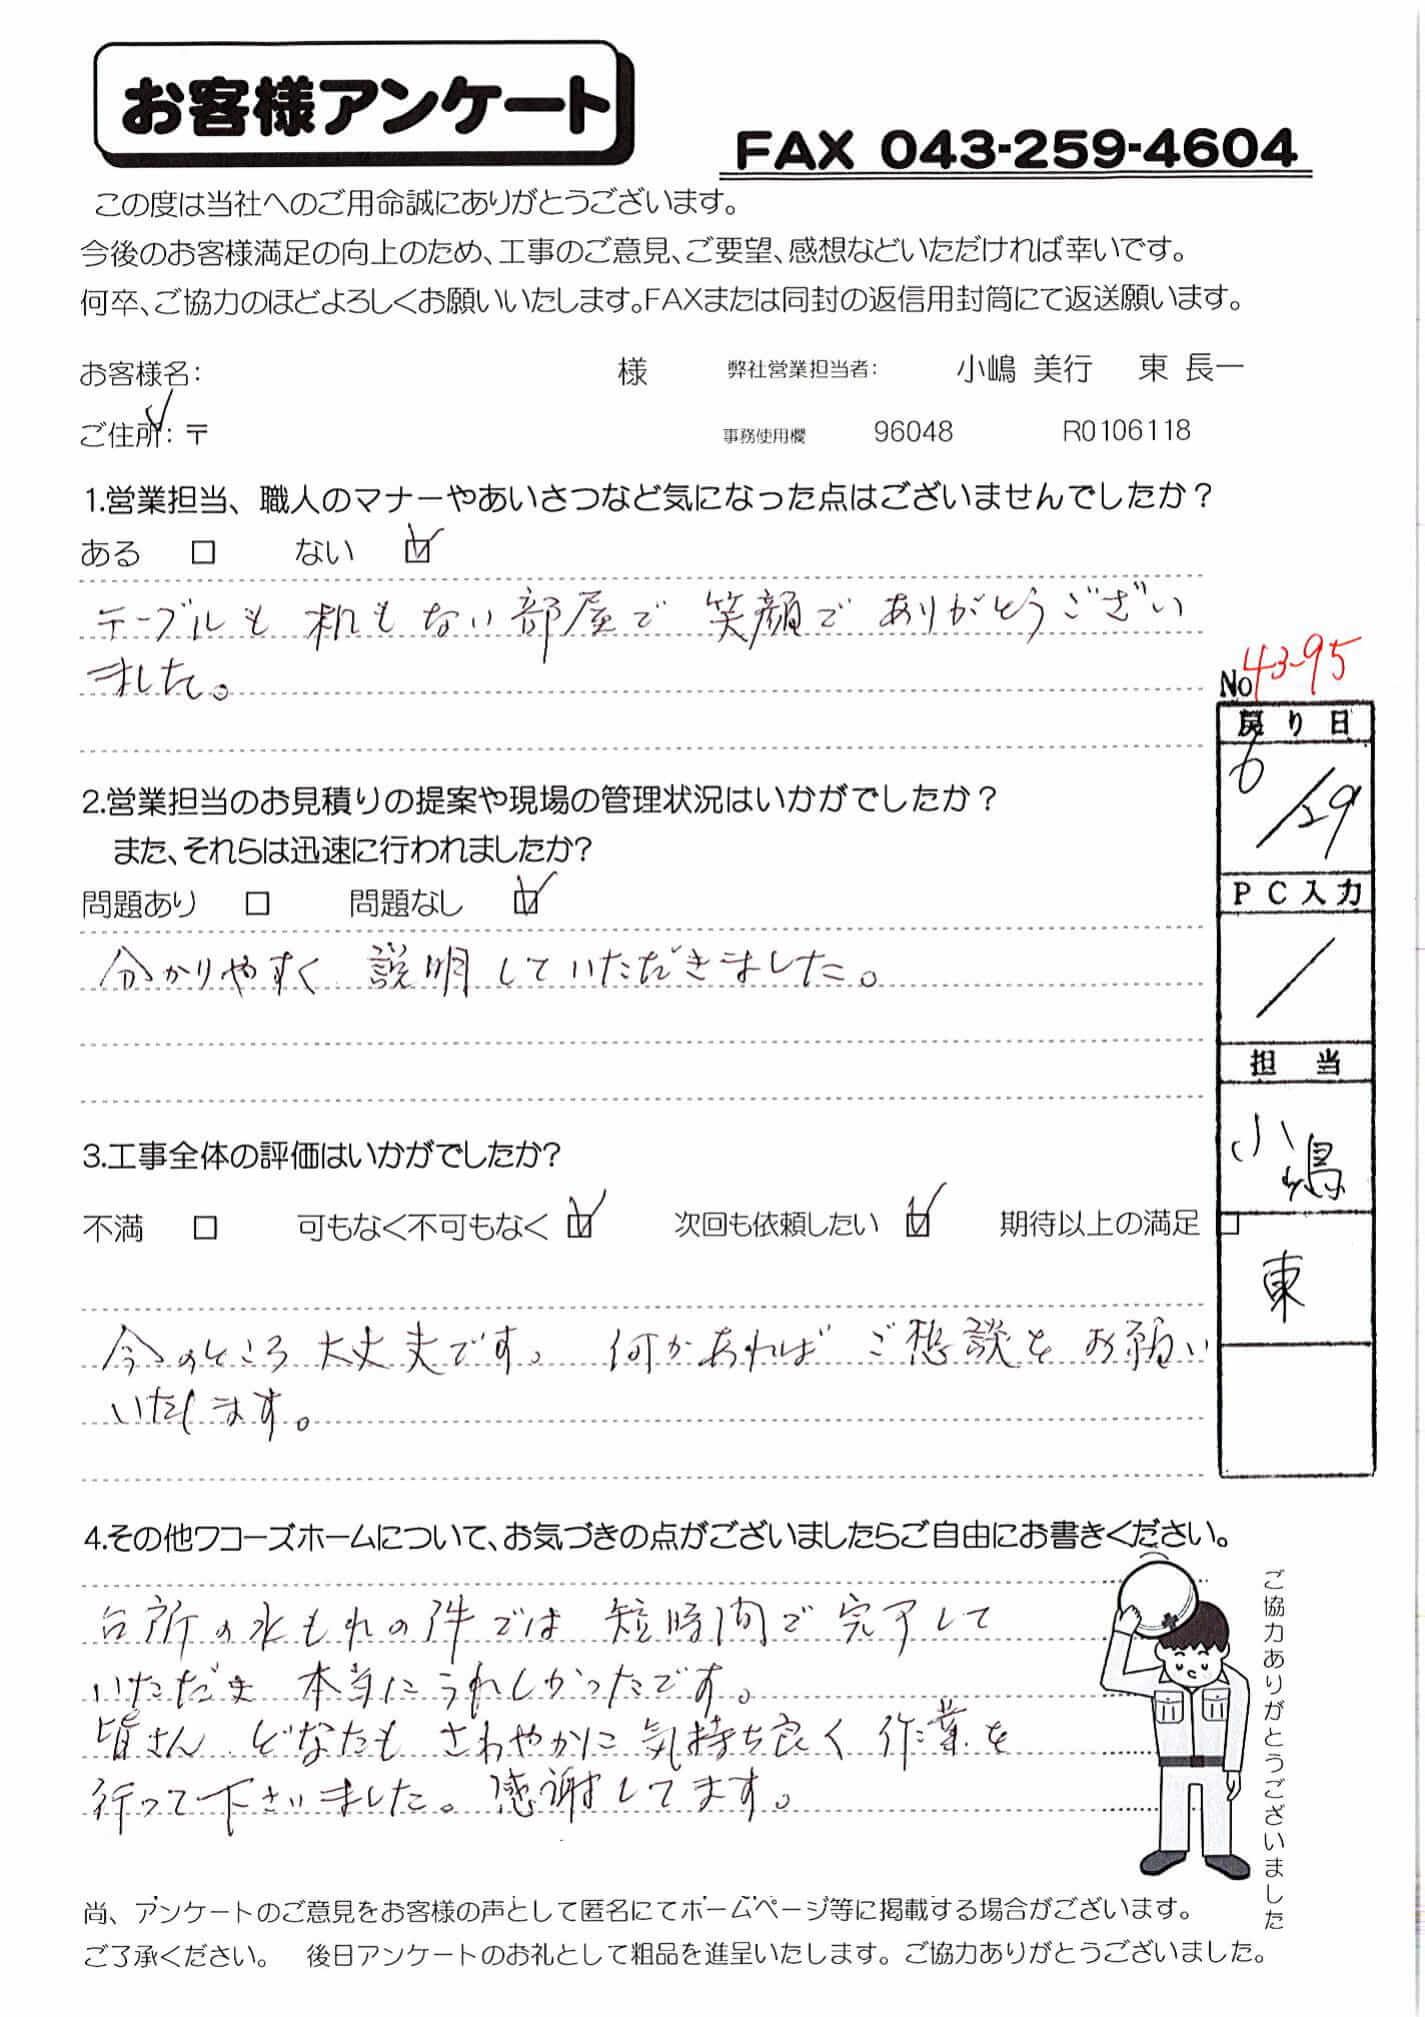 お客様アンケート
FAX 043-259-4604
この度は当社へのご用命誠にありがとうございます。
今後のお客様満足の向上のため、工事のご意見、ご要望、感想などいただければ幸いです。
何卒、ご協力のほどよろしくお願いいたします。FAXまたは同封の返信用封筒にて返送願います。
お客様名: 様 弊社営業担当者: 小嶋 美行 東 長一
ご住所: 〒 事務使用欄 96048 R0106118
1.営業担当、職人のマナーやあいさつなど気になった点はございませんでしたか？
ある □ ない ☑
テーブルも机もない部屋で笑顔でありがとうござい
ました。
No 43-95
戻り日
6/29
PC入力
/
担当
小嶋
東
2.営業担当のお見積りの提案や現場の管理状況はいかがでしたか？
また、それらは迅速に行われましたか?
問題あり □ 問題なし ☑
分かりやすく説明していただきました。
3.工事全体の評価はいかがでしたか?
不満 □ 可もなく不可もなく ☑ 次回も依頼したい ☑ 期待以上の満足 □
今のところ大丈夫です。何かあればご想談をお願い
いたします。
4.その他ワコーズホームについて、お気づきの点がございましたらご自由にお書きください。
台所の水もれの件では短時間で完了して
いただき本当にうれしかったです。
皆さんどなたもさわやかに気持ち良く作業を
行って下さいました。感謝してます。
ご協力ありがとうございました
尚、アンケートのご意見をお客様の声として匿名にてホームページ等に掲載する場合がございます。
ご了承ください。 後日アンケートのお礼として粗品を進呈いたします。ご協力ありがとうございました。